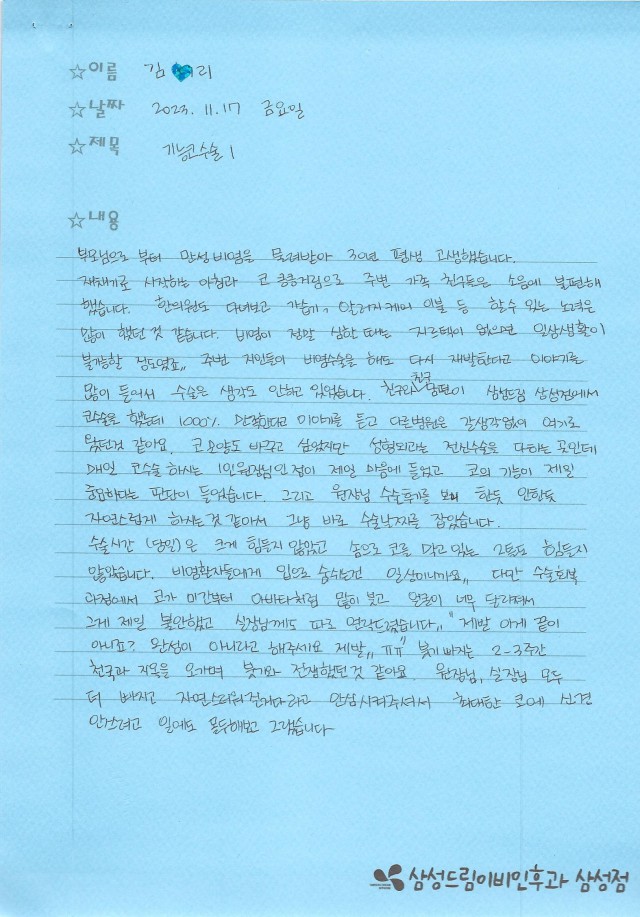 ☆이름 김💙리
☆날짜 2023. 11. 17 금요일
☆제목 기능코수술 1
☆내용
부모님으로 부터 만성비염을 물려받아 30년 평생 고생했습니다.
재채기로 시작하는 아침과 코 킁킁거림으로 주변 가족 친구들은 소음에 불편해
했습니다. 한의원도 다녀보고 가습기, 알러지케어 이불 등 할수 있는 노력은
많이 했던것 같습니다. 비염이 정말 심한 때는 지르텍이 없으면 일상생활이
불가능할 정도였죠,, 주변 지인들이 비염수술을 해도 다시 재발한다고 이야기를
많이 들어서 수술은 생각도 안하고 있었습니다. 친구와 친구 남편이 삼성드림 삼성점에서
코수술을 했는데 1000% 만족한다고 이야기를 듣고 다른병원은 갈생각없이 여기로
왔던것 같아요. 코 모양도 바꾸고 싶었지만 성형외과는 전신수술을 다하는 곳인데
매일 코수술 하시는 1인원장님인 점이 제일 마음에 들었고 코의 기능이 제일
중요하다는 판단이 들었습니다. 그리고 원장님 수술후기를 보며 한듯 안한듯
자연스럽게 하시는것 같아서 그냥 바로 수술날짜를 잡았습니다.
수술시간 (당일)은 크게 힘들지 않았고 솜으로 코를 막고 있는 2틀도 힘들지
않았습니다. 비염환자들에게 입으로 숨쉬는건 일상이니까요,, 다만 수술회복
과정에서 코가 미간부터 아바타처럼 많이 붓고 얼굴이 너무 달라져서
그게 제일 불안했고 실장님께도 따로 연락드렸습니다,, "제발 이게 끝이
아니죠? 완성이 아니라고 해주세요 제발,, ㅠㅠ" 붓기 빠지는 2-3주간
천국과 지옥을 오가며 붓기와 전쟁했던 것 같아요. 원장님, 실장님 모두
더 빠지고 자연스러워질거다라고 안심시켜주셔서 최대한 코에 신경
안쓰려고 일에도 몰두해보고 그랬습니다
삼성드림이비인후과 삼성점